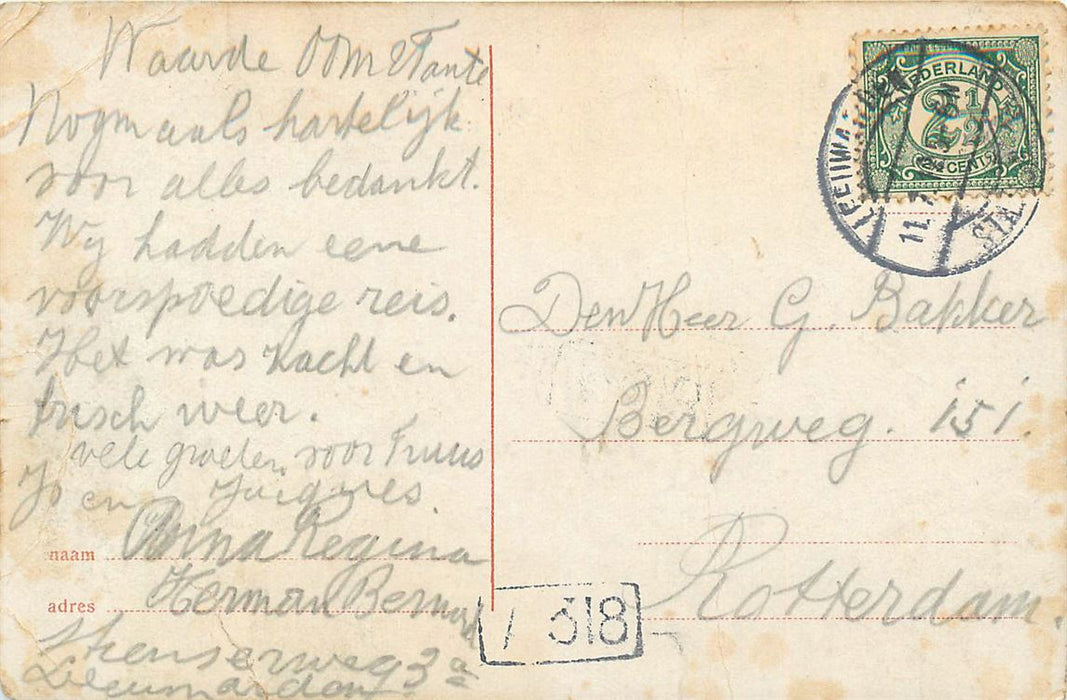 Waarde Oom & Tante
Nogmaals hartelijk
voor alles bedankt.
Wij hadden eene
voorspoedige reis.
Het was zacht en
frisch weer.
vele groeten voor Truus
Jo en Jacques
naam Anna Regina
adres Herman Bernard
3a
Leeuwarden
NEDERLAND
2 1/2
2 1/2 CENT
LEEUWARDEN
11.7
STA
Den Heer G. Bakker
Bergweg. 151.
Rotterdam.
318